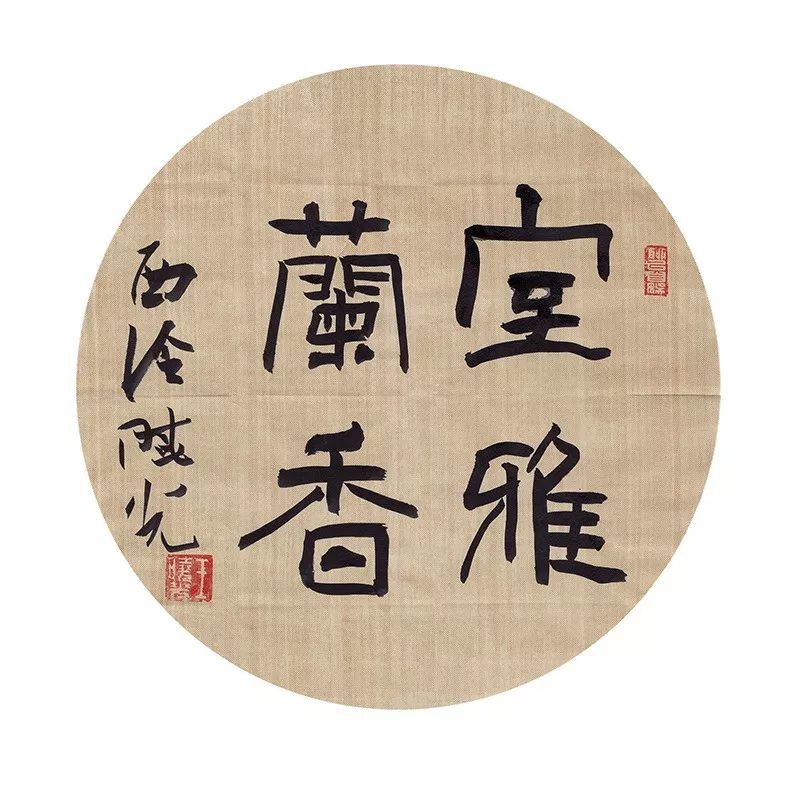 室雅
蘭香
西泠光